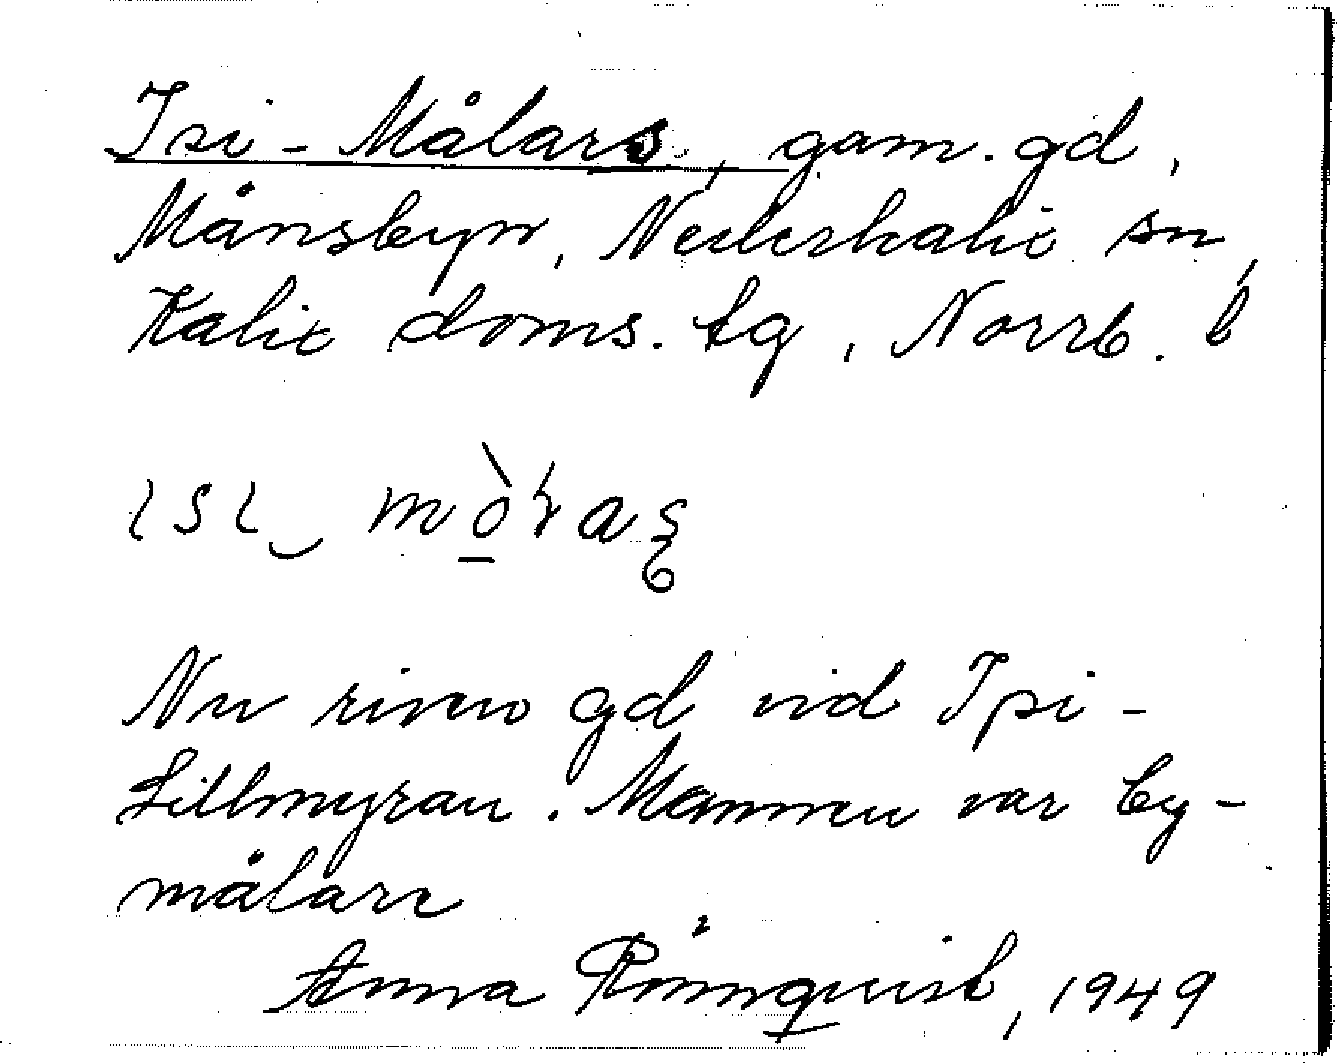 Isi-Målars, gam. gd,
Månsbyn, Nederkalix sn,
Kalix doms. tg, Norrb. l
Nu riven gd vid Ipi-
Lillmyran. Mannen var by-
målare
Anna Rönnquist, 1949